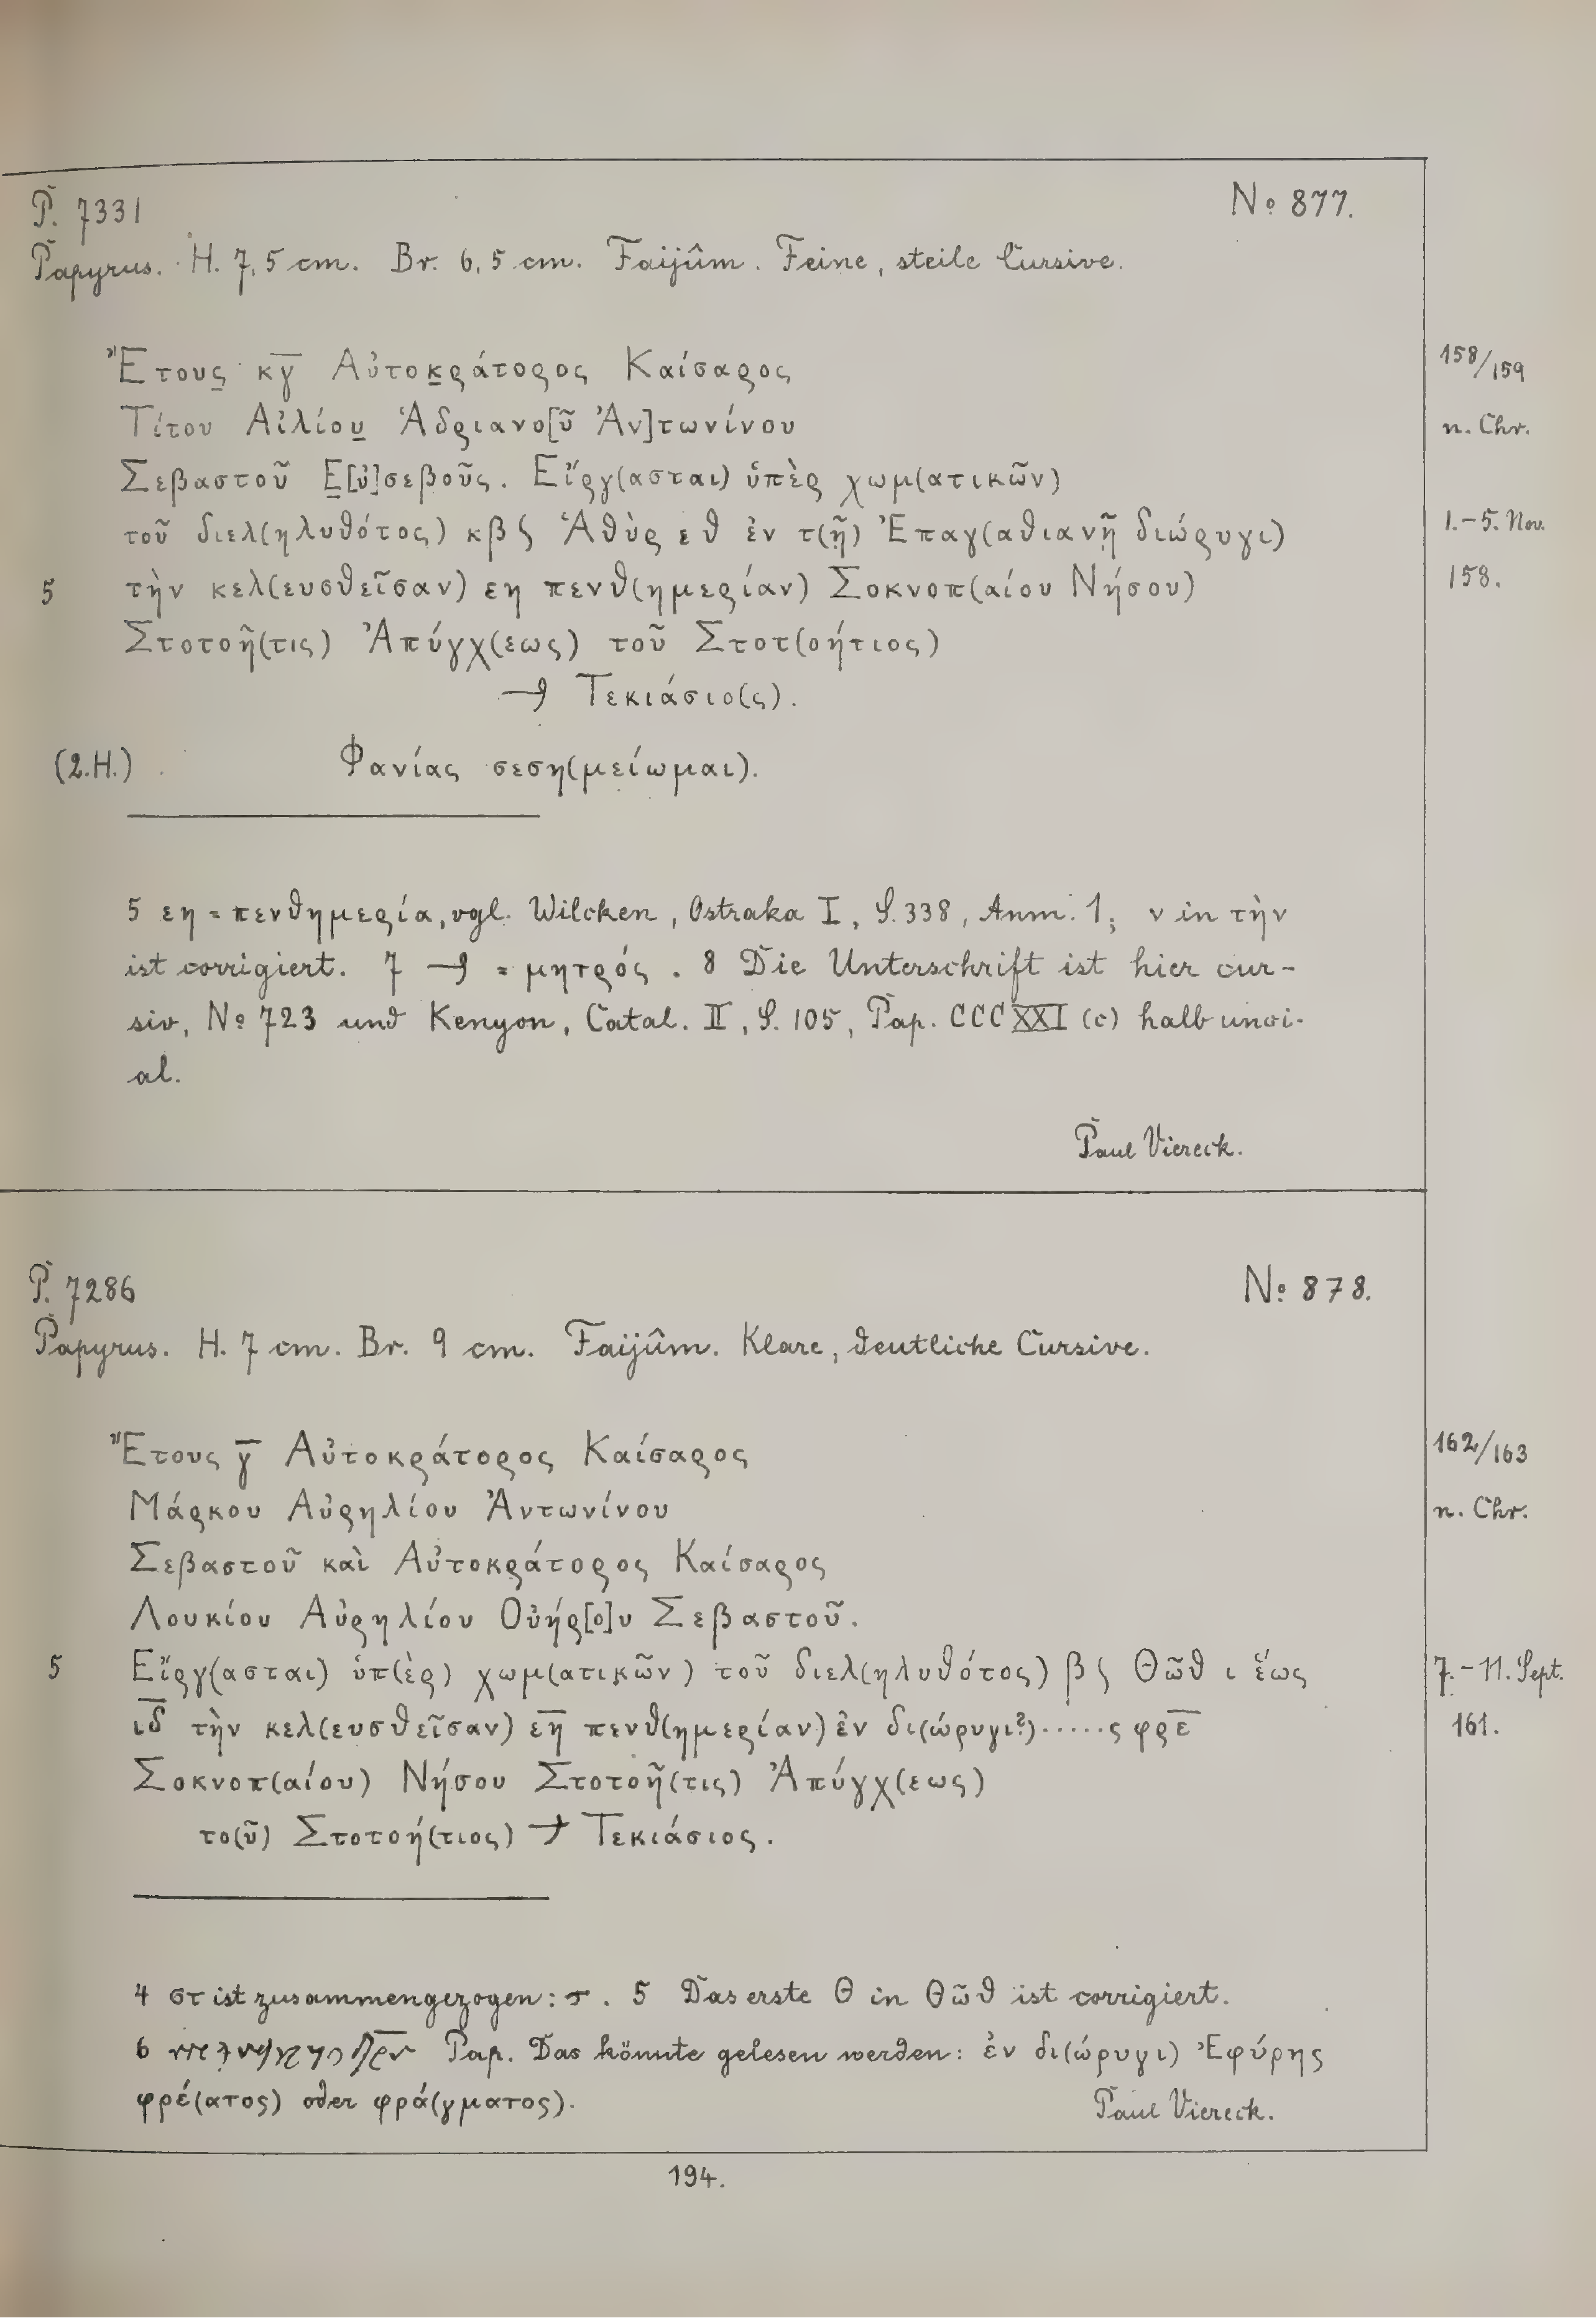 P. 7331
No 877.
Papyrus. H. 7,5 cm. Br. 6,5 cm. Faijûm. Feine, steile Cursive.
Ἔτους̲ κγ̅ Αὐτοκ̲ράτορος Καίσαρος
158/159
Τίτου Αἰλίου̲ Ἁδριανο[ῦ Ἀν]τωνίνου
n. Chr.
Σεβαστοῦ Ε̲[ὐ]σεβοῦς. Εἴργ(ασται) ὑπὲρ χωμ(ατικῶν)
τοῦ διελ(ηλυθότος) κβ ϛ Ἁθὺρ εθ ἐν τ(ῇ) Ἐπαγ(αθιανῇ διώρυγι)
1.–5. Nov.
5 τὴν κελ(ευσθεῖσαν) εη πενθ(ημερίαν) Σοκνοπ(αίου Νήσου)
158.
Στοτοῆ(τις) Ἀπύγχ(εως) τοῦ Στοτ(οήτιος)
Τεκιάσιο(ς).
(2.H.) Φανίας σεση(μείωμαι).
5 εη = πενθημερία, vgl. Wilcken, Ostraka I, S. 338, Anm. 1; ν in τὴν
ist corrigiert. 7 = μητρός. 8 Die Unterschrift ist hier cur-
siv, No 723 und Kenyon, Catal. II, S. 105, Pap. CCCXXI (c) halbunci-
al.
Paul Viereck.
P. 7286
No 878.
Papyrus. H. 7 cm. Br. 9 cm. Faijûm. Klare, deutliche Cursive.
Ἔτους γ̅ Αὐτοκράτορος Καίσαρος
162/163
Μάρκου Αὐρηλίου Ἀντωνίνου
n. Chr.
Σεβαστοῦ καὶ Αὐτοκράτορος Καίσαρος
Λουκίου Αὐρηλίου Οὐήρ[ο]υ Σεβαστοῦ.
5 Εἴργ(ασται) ὑπ(ὲρ) χωμ(ατικῶν) τοῦ διελ(ηλυθότος) β ϛ Θῶθ ι ἕως
7.–11. Sept.
ιδ̅ τὴν κελ(ευσθεῖσαν) εη̅ πενθ(ημερίαν) ἐν δι(ώρυγι?).....ς φρε̅
161.
Σοκνοπ(αίου) Νήσου Στοτοῆ(τις) Ἀπύγχ(εως)
το(ῦ) Στοτοή(τιος) Τεκιάσιος.
4 στ ist zusammengezogen: . 5 Das erste Θ in Θῶθ ist corrigiert.
6 Pap. Das könnte gelesen werden: ἐν δι(ώρυγι) Ἐφύρης
φρέ(ατος) oder φρά(γματος).
Paul Viereck.
194.